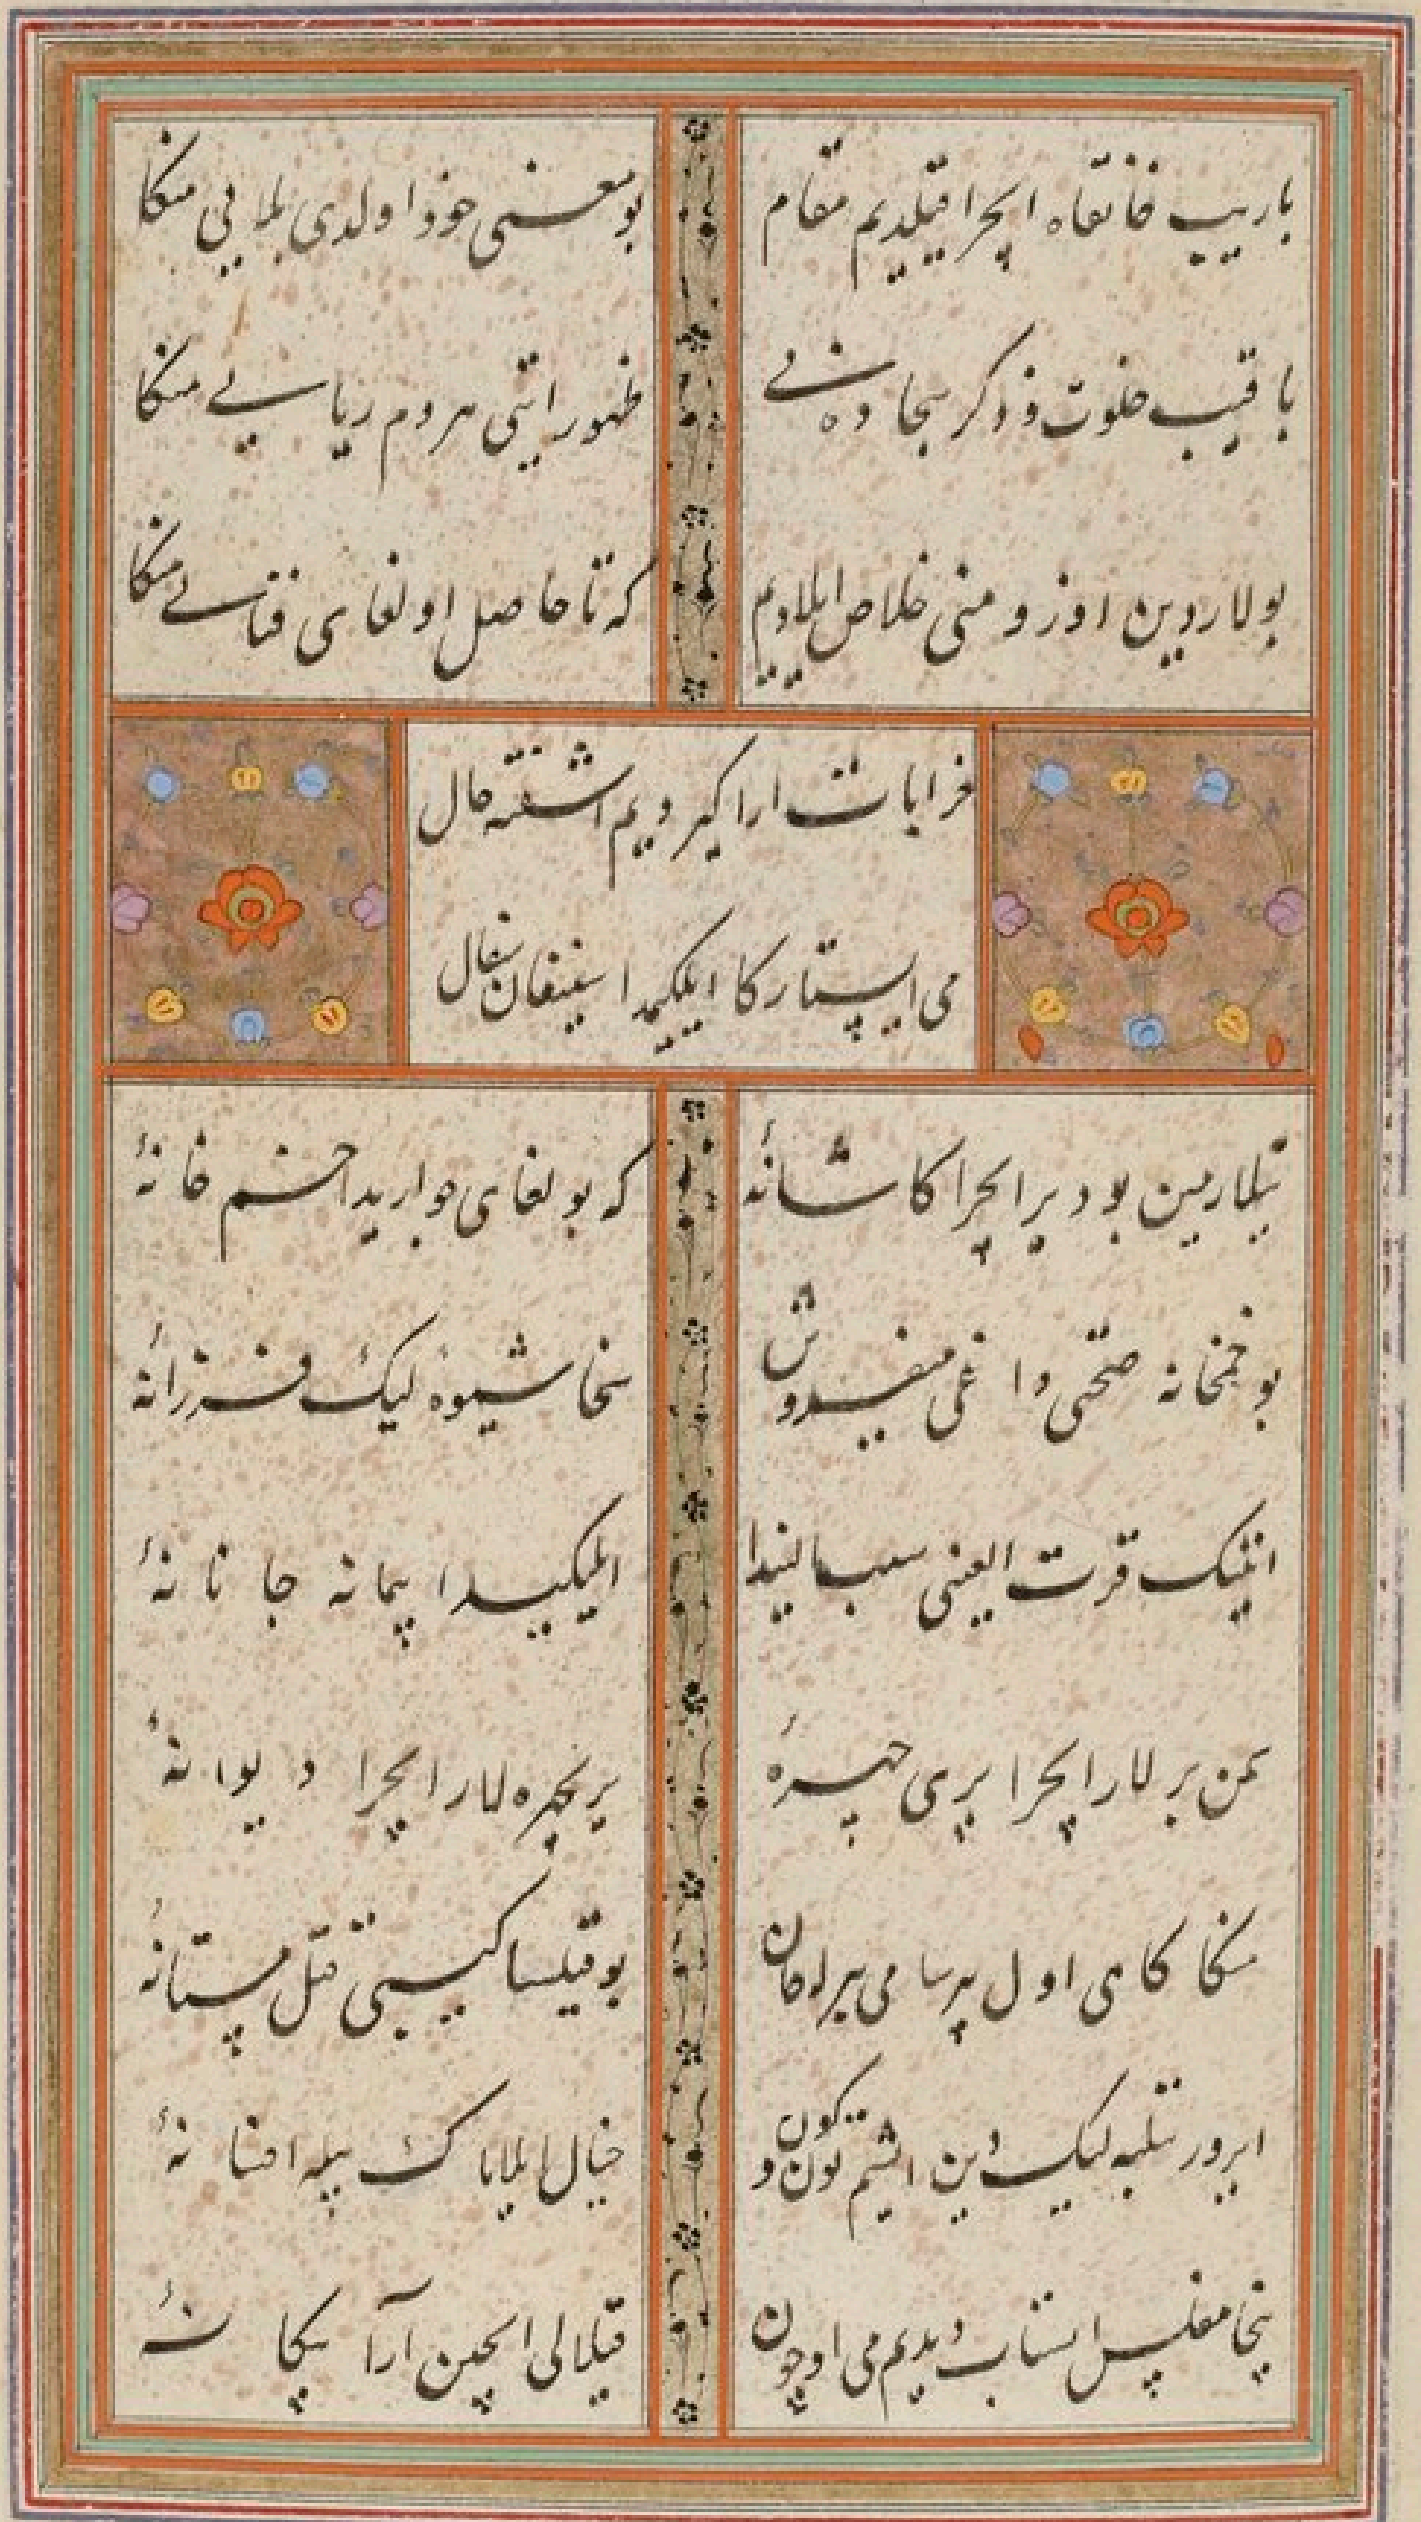 باریب خانقاه ایچرا قیلدیم مقام
بو معنی خود اولدی بلایی منکا
باقیب خلوت و ذکر سجاده نی
ظهور ایتی هر دم ریایی منکا
بولاردین اوزومنی خلاص ایلادیم
که تا حاصل اولغای فنایی منکا
خرابات ارا کیردیم اشفته حال
می ایستارکا ایلکیمدا سینغان سفال
تیلارمین بو دیر ایچرا کاشانهٔ
که بولغای جواریدا خمخانهٔ
بو خمخانه صحنی داغی میفروش
سخا شیوهٔ لیک فرزانهٔ
انینک قرت العینی سب الیندا
ایلیکیدا پیمانه جانانهٔ
یمن بر لار ایچرا پری چهرهٔ
پریچهره لار ایچرا دیوانهٔ
منکا کامی اول پرسا می بیرلاکان
بو قیلسا کیسیمی قتل مستانهٔ
ایرور تیلبه لیک دین ایشیم تون و کون
خیال ایلاماک بیله افسانهٔ
نیچا مفلس ایستاب دیدیم می اوچون
قیلالی ایچین آرا پیکانهٔ